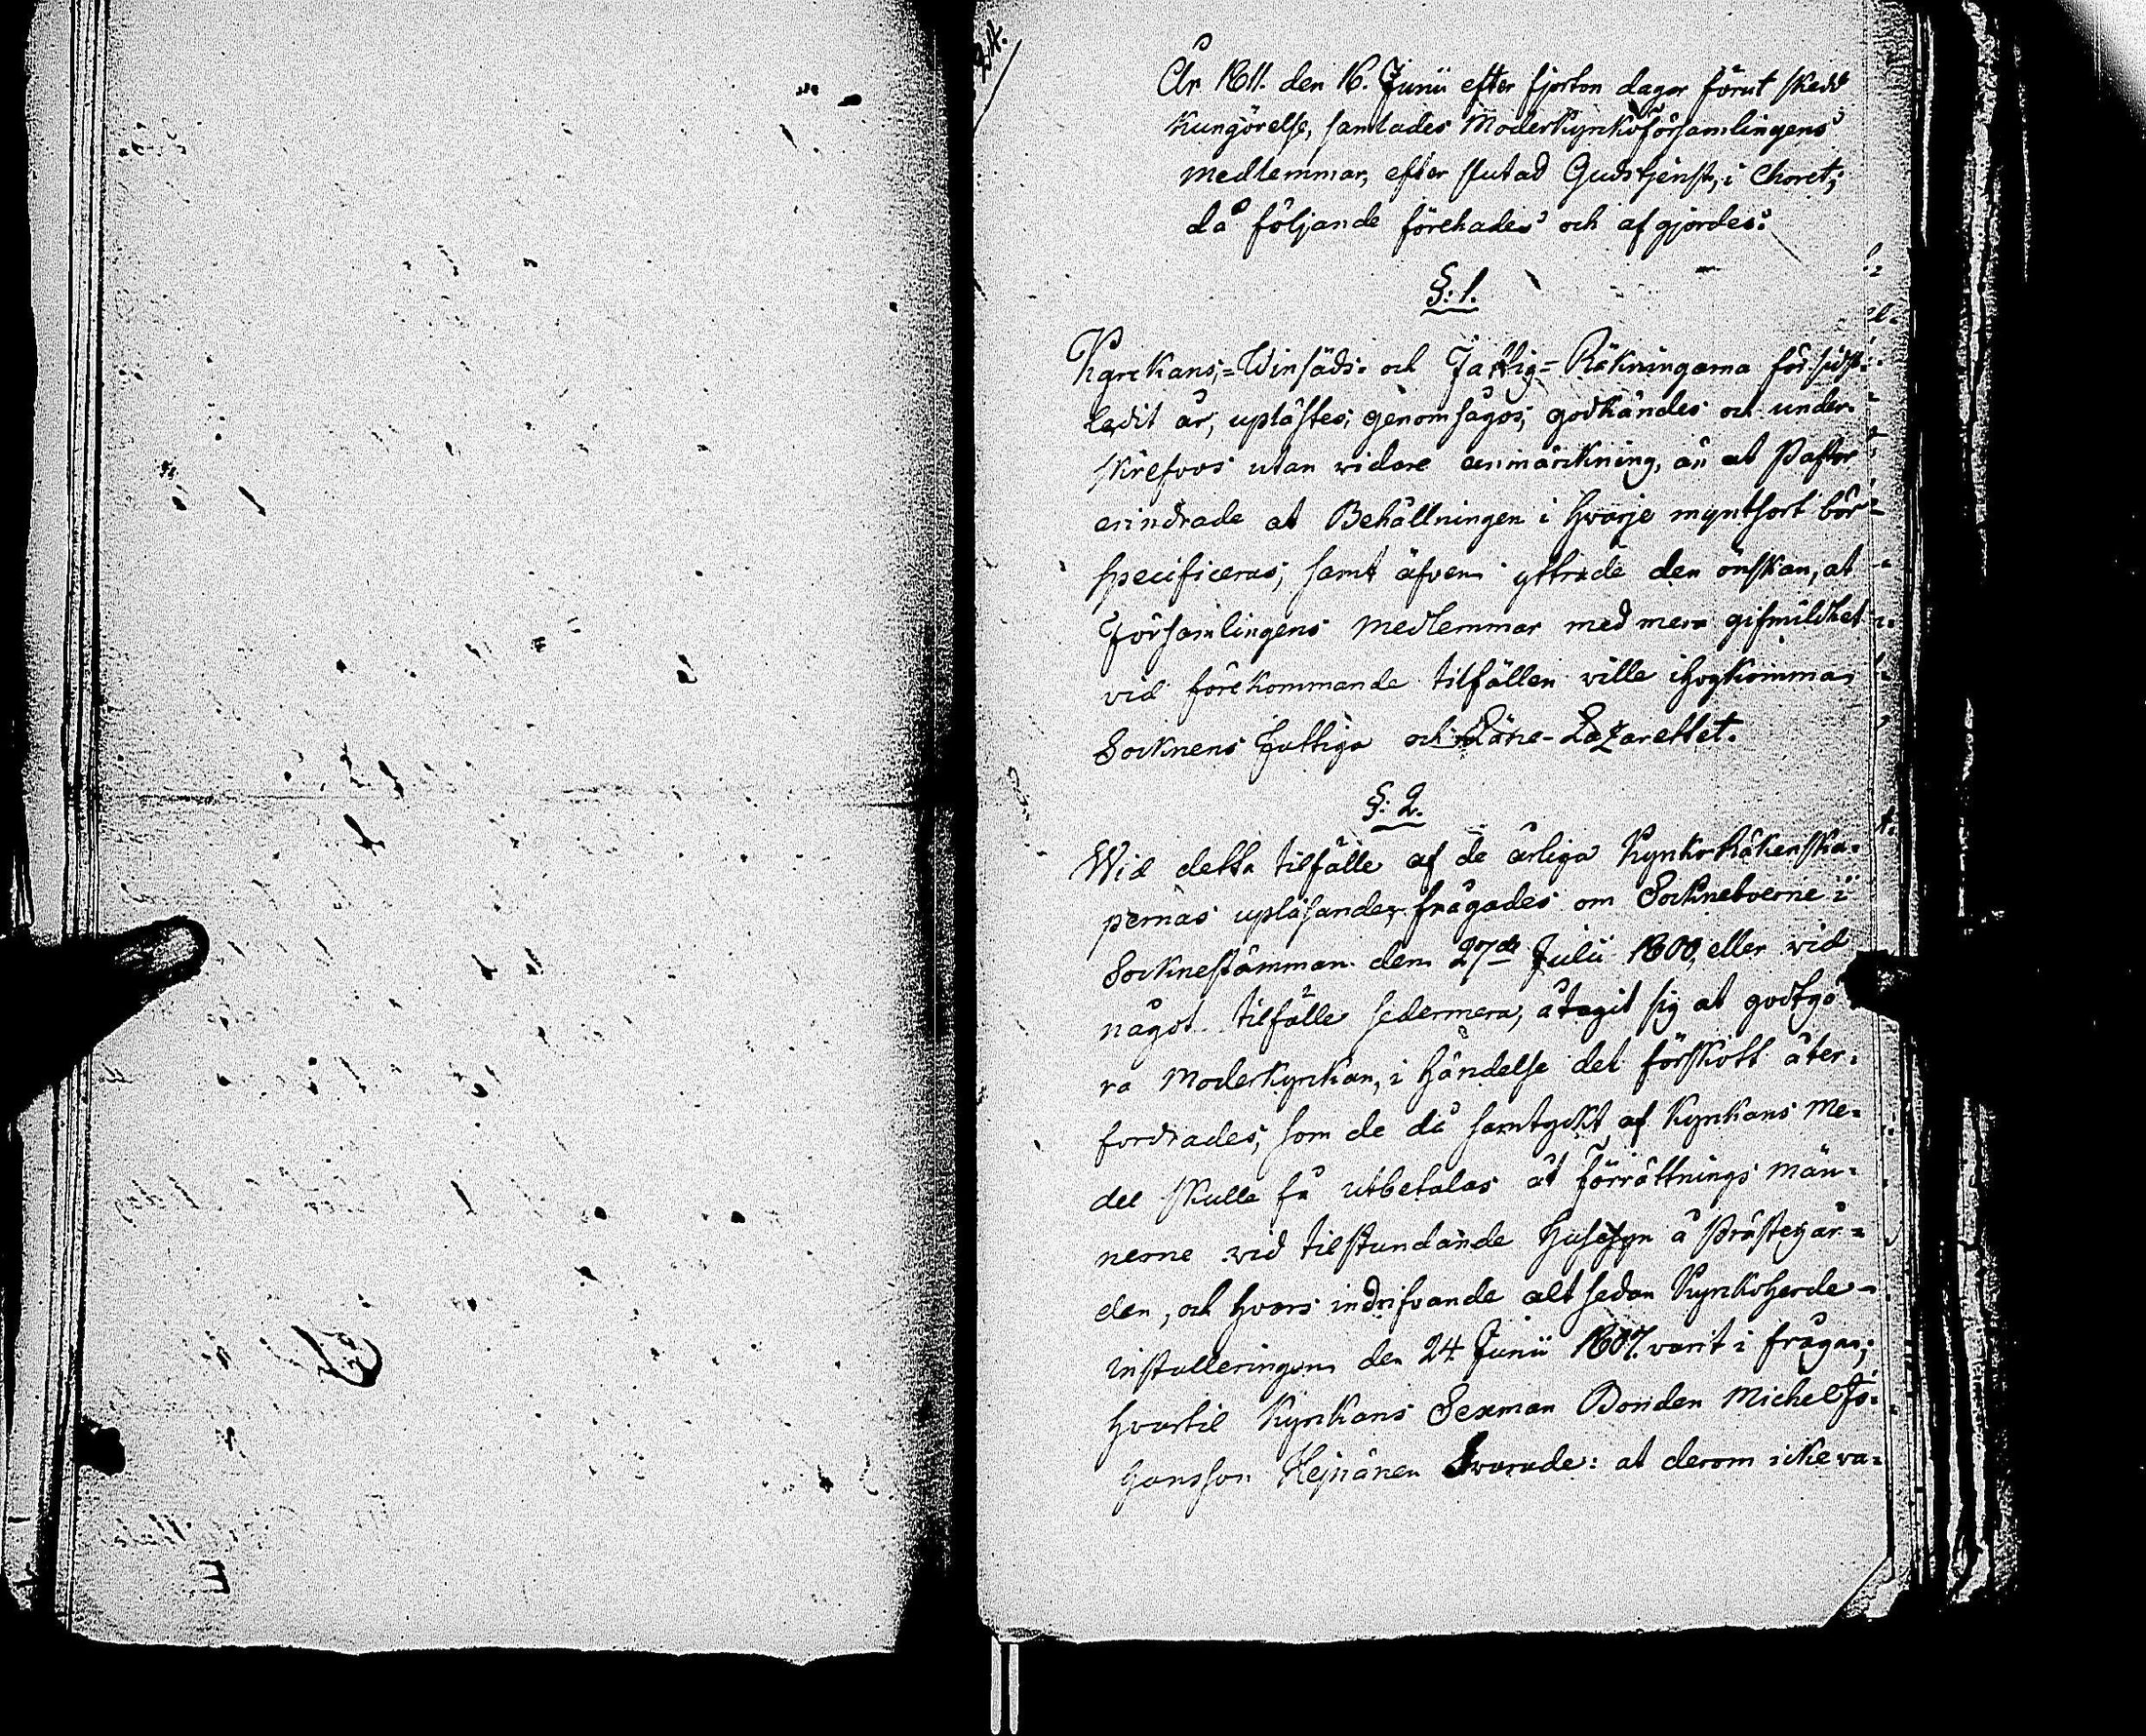 År 1811. den 16. Junii efter fjorton dagar förut skedd
kungörelse, samlades Moderkyrkoförsamlingens
medlemmar, efter slutad Gudstjenst, i Choret,
då följande förehades och afgjordes:
§. 1.
Kyrckans,= Winsäds= och Fattig= Räkningarna för sidst=
ledit år, uplästes, genomsågos, godkändes och under=
skrefvos utan widare anmärckning, än at Pastor
erindrade at Behållningen i hvarje myntsort bör
specificeras, samt äfven yttrade den önskan, at
Församlingens medlemmar med mera gifmildhet
vid förekommande tilfällen wille ihogkomma
Socknens fattiga och Läne-Lazarettet.
§. 2.
Wid detta tilfälle af de årliga Kyrko Räkenska=
pernas upläsande, frågades om Socknebverne i
Socknestämman den 27de Julii 1800, eller wid
något tilfälle sedermera, åtagit sig at godtgö
ra Moderkyrkan, i händelse det förskott åter=
fordrades, som de då samtyckt af Kyrkans me=
del skulle få utbetalas åt Förrättnings män=
nerne wid tilstundande Husesyn å Prästegår=
den, och hvars indrifvande alt sedan Kyrkoherde=
installeringen den 24 Junii 1807. varit i frågan;
hvartil Kyrkans Sexman Bonden Michel Jo=
hansson Hejnänen Swarade: at derom icke va=